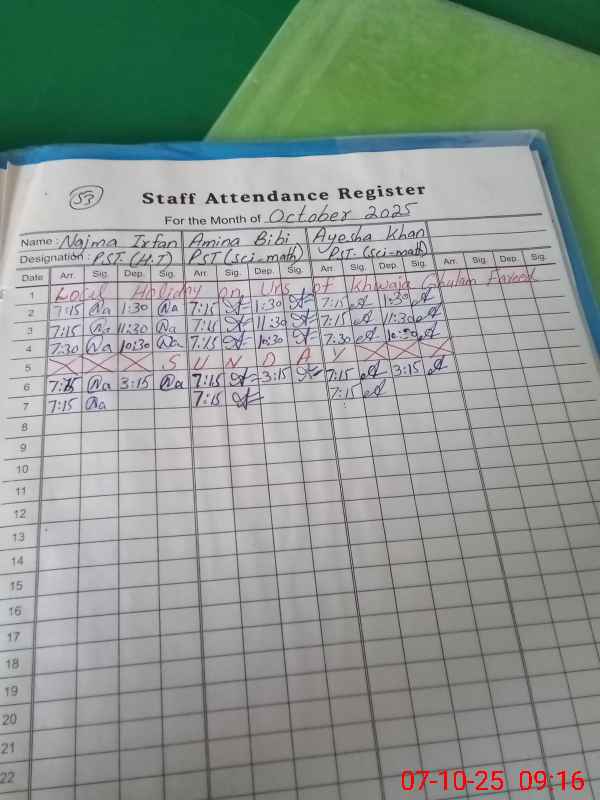 53
Staff Attendance Register
For the Month of October 2025
Name : Najma Irfan Amina Bibi Ayesha Khan
Designation : PST (H.T) PST (sci-math) PST (sci-math)
Date Arr. Sig. Dep. Sig. Arr. Sig. Dep. Sig. Arr. Sig. Dep. Sig. Arr. Sig. Dep. Sig.
1 Local Holiday on Urs of Khwaja Ghulam Fareed
2 7:15 Na 1:30 Na 7:15 1:30 7:15 1:30
3 7:15 Na 11:30 Na 7:15 11:30 7:15 11:30
4 7:30 Na 10:30 Na 7:15 10:30 7:30 10:30
5 S U N D A Y
6 7:15 Na 3:15 Na 7:15 3:15 7:15 3:15
7 7:15 Na 7:15 7:15
8
9
10
11
12
13
14
15
16
17
18
19
20
21
22
07-10-25 09:16